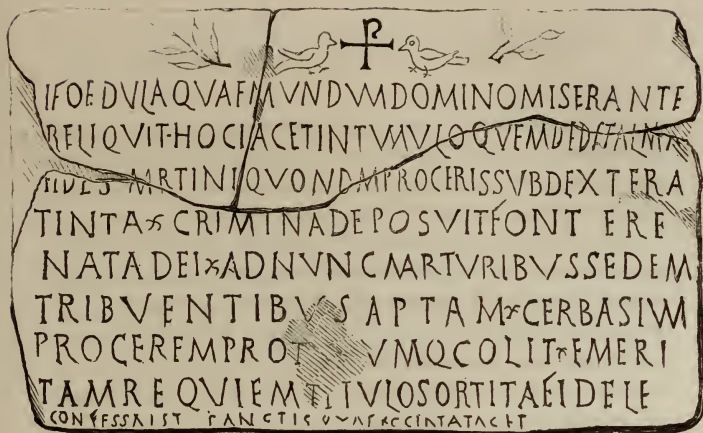 IFOEDVLAQVAEMVNDVMDOMINOMISERANTE
RELIQVIT·HOCIACETINTVMVLOQVEMDEDETALMA
FIDES MRTINIQVONDMPROCERISSVBDEXTERA
TINTA CRIMINADEPOSVITFONTERE
NATADEI ADNVNCMARTVRIBVSSEDEM
TRIBVENTIBVSAPTAM CERBASIVM
PROCEREMPROT VMQCOLIT EMERI
TAMREQVIEMTITVLOSORTITAFIDELE
CONFESSAIST SANCTIS